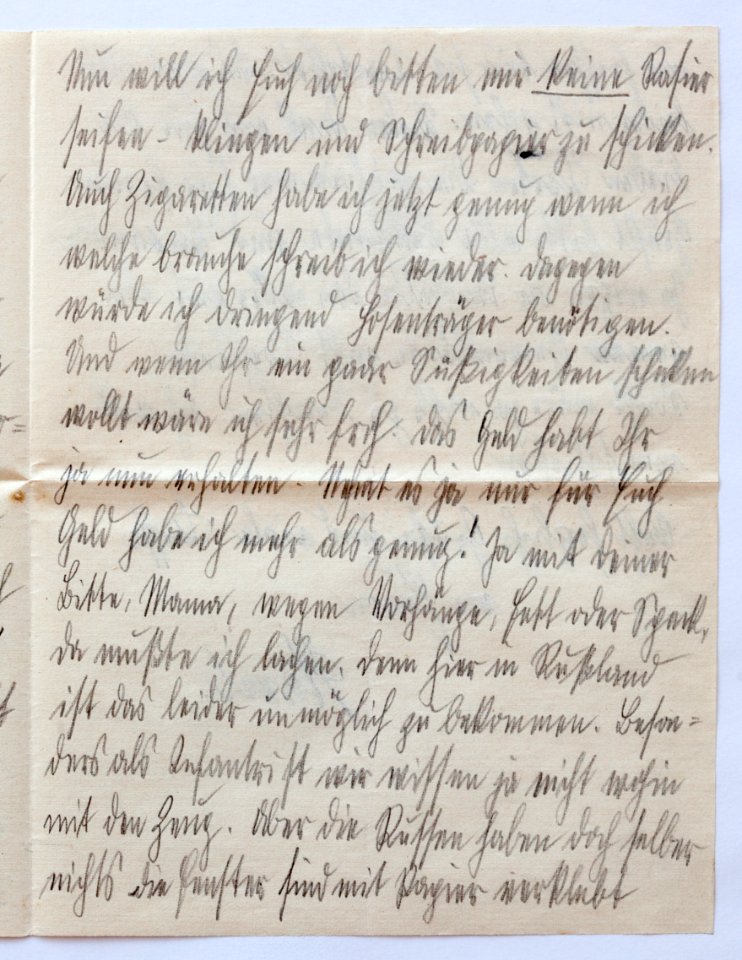 Nun will ich Euch noch bitten mir keine Rasier
seifen - klingen und Schreibpapier zu schicken.
Auch Zigaretten habe ich jetzt genug wenn ich
welche brauche schreib ich wieder. dagegen
würde ich dringend Hosenträger benötigen.
Und wenn Ihr ein paar Süßigkeiten schicken
wollt wäre ich sehr froh. das Geld habt Ihr
ja nun erhalten. Nehmt es ja nur für Euch
Geld habe ich mehr als genug! Ja mit deiner
Bitte, Mama, wegen Vorhänge, Fett oder Speck,
da mußte ich lachen, denn hier in Rußland
ist das leider unmöglich zu bekommen. Beson=
ders als Infantrist wir wissen ja nicht wohin
mit den Zeug. Aber die Russen haben doch selber
nichts die Fenster sind mit Papier verklebt